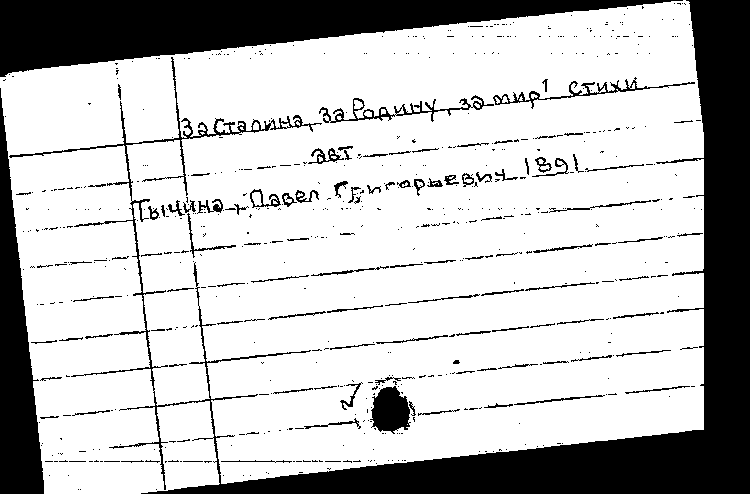 За Сталина, за Родину, за мир! стихи.
авт.
Тычина, Павел Григорьевич 1891